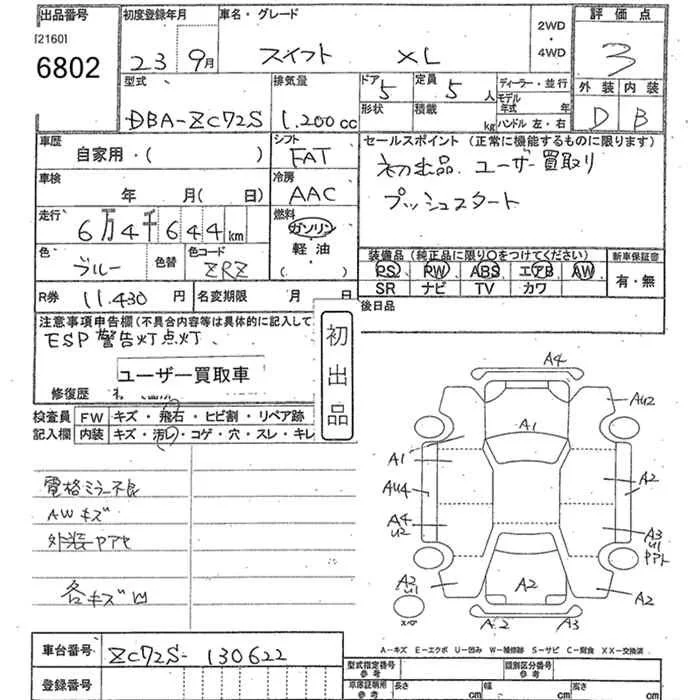 出品番号 初度登録年月 車名・グレード 2WD・4WD 評価点
[2160]
6802 23 9月 スイフト XL 3
型式 排気量 ドア 定員 ディーラー・並行 外装 内装
DBA-ZC72S 1,200cc 5 5人 モデル年式 年 D B
形状 積載 kg ハンドル 左・右
車歴 シフト セールスポイント(正常に機能するものに限ります)
自家用・( ) FAT 初出品 ユーザー買取り
車検 冷房 プッシュスタート
年 月( 日) AAC
走行 燃料
6万4千644km ガソリン
軽油
( )
色 色替 色コード 装備品(純正品に限り○をつけてください) 新車保証書
ブルー ZRZ PS PW ABS エアB AW 有・無
SR ナビ TV カワ
R券 11,430円 名変期限 月 日 後日品
注意事項申告欄(不具合内容等は具体的に記入して
ESP警告灯点灯
初出品
ユーザー買取車
修復歴
検査員記入欄 FW キズ・飛石・ヒビ割・リペア跡
内装 キズ・汚レ・コゲ・穴・スレ・キレ
電格ミラー不良
AWキズ
外装ヤケ
各キズ凹
A4
AU2
A1
A1
AU4
A2
A2
A4
U2
A3
U1
A2
U1
A2
A2
A2 A3
A-キズ E-エクボ U-凹み W-補修跡 S-サビ C-腐食 XX-交換済
車台番号 ZC72S-130622
登録番号
型式指定番号 参考 類別区分番号 参考
車庫証明用 参考 長さ cm 幅 cm 高さ cm